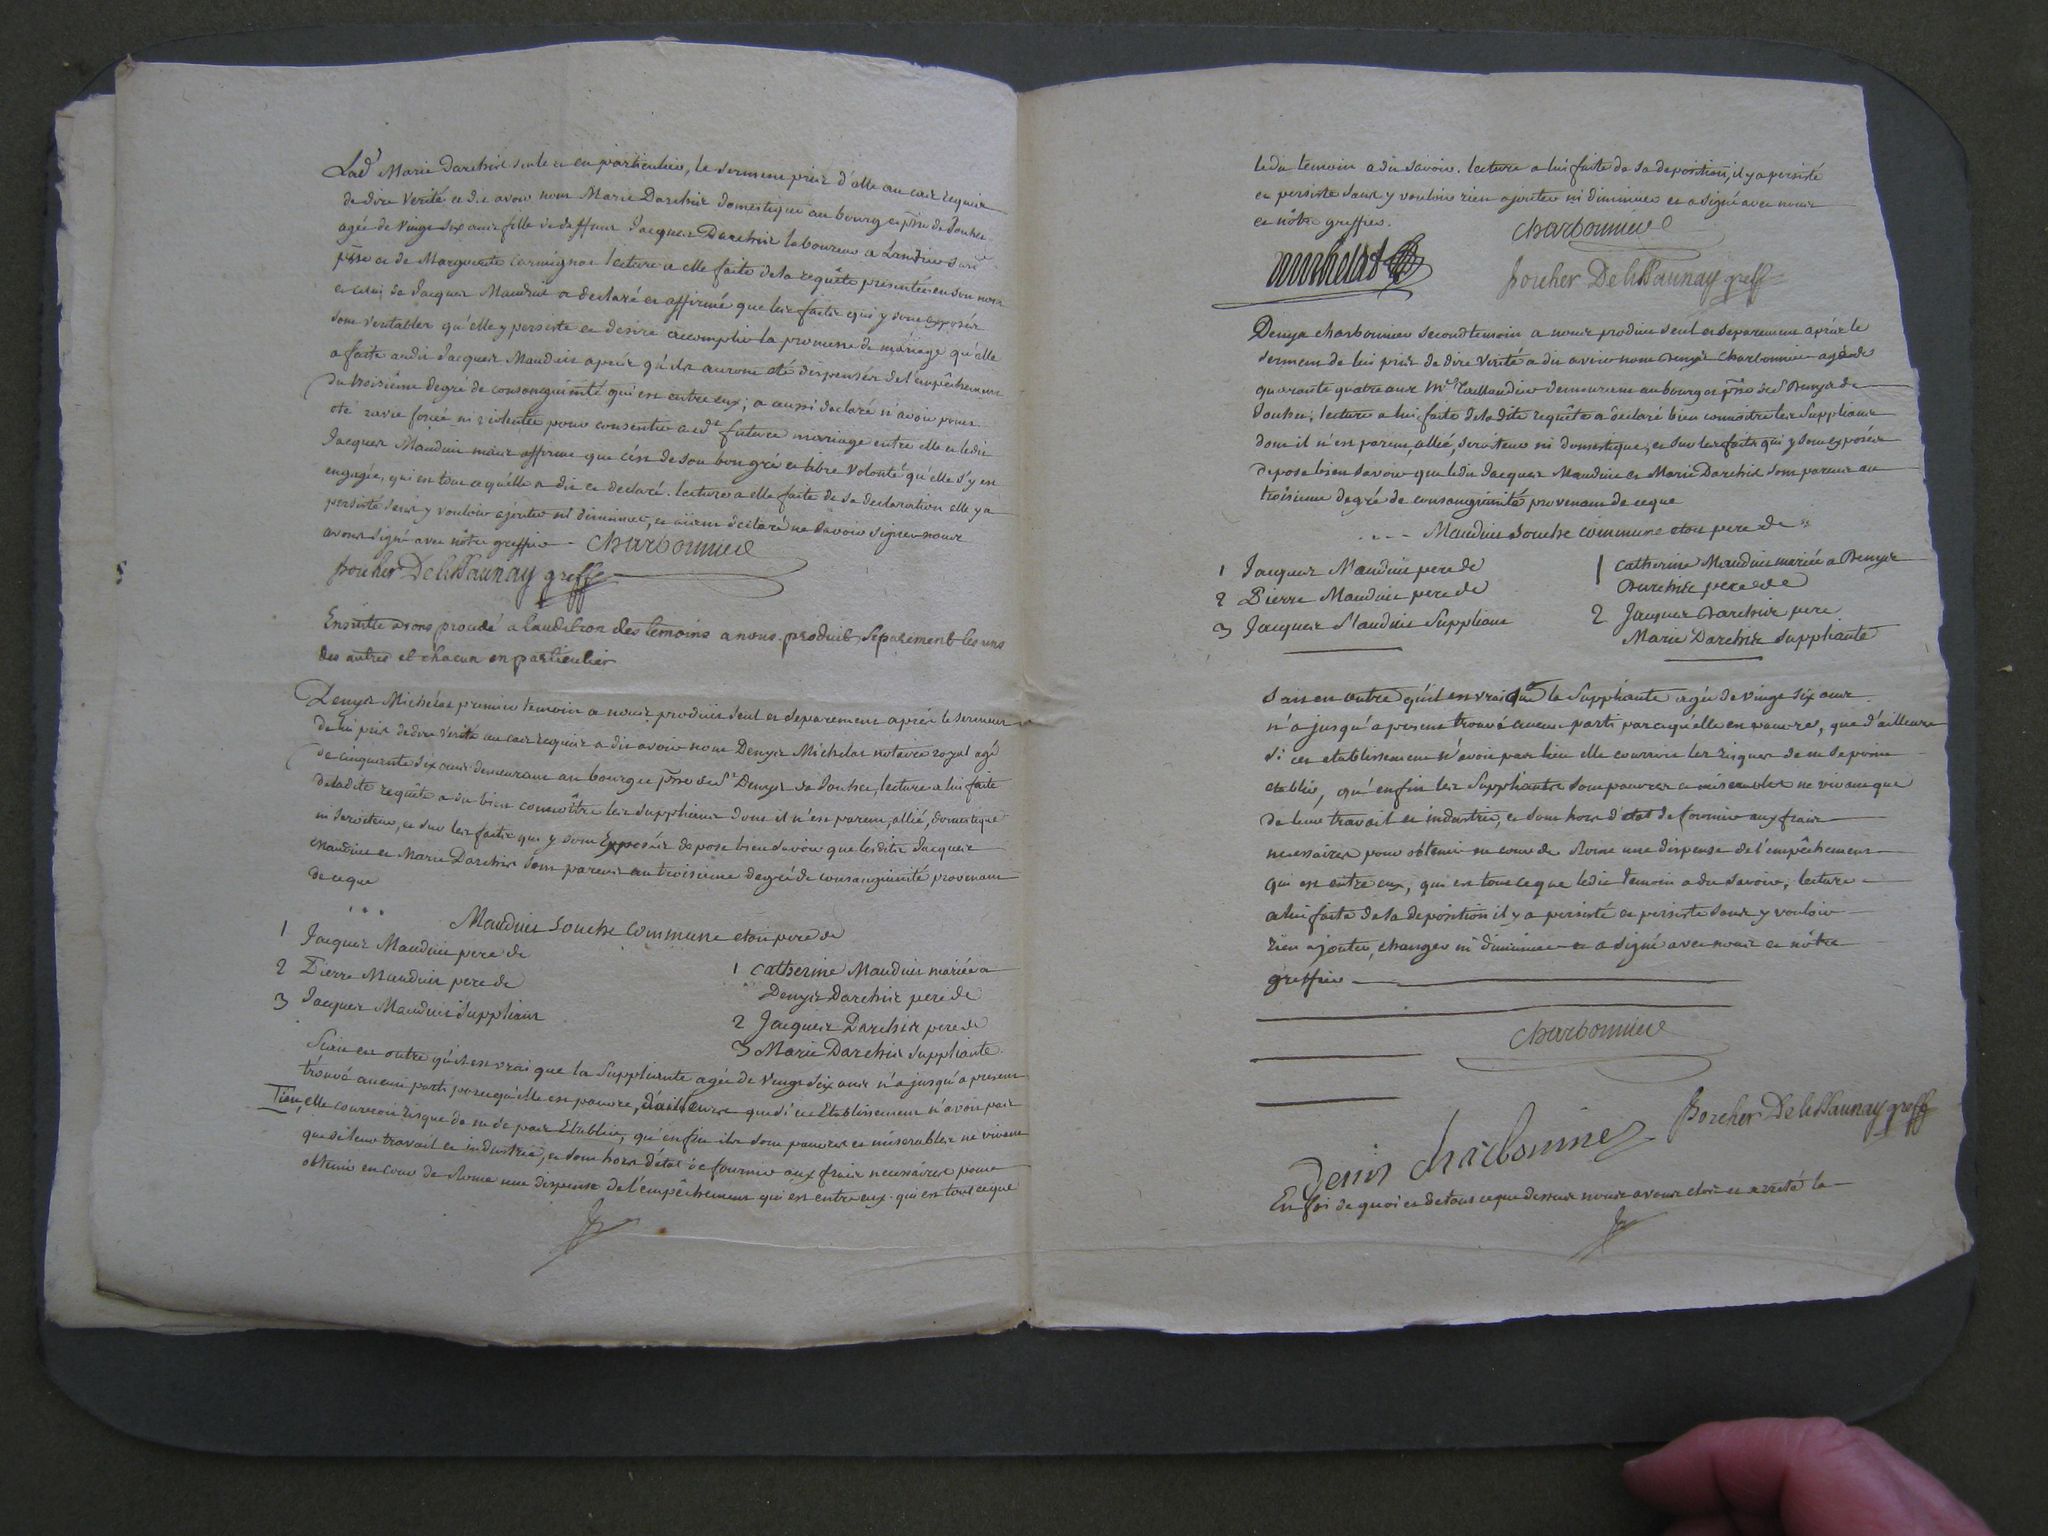 Lad^e Marie Darchis seule et en particulier, le serment pris d'elle au cas requis
de dire verité a dit avoir nom Marie Darchis domestique au bourg et p^sse de Jouhet
agée de vingt six ans fille de deffunt Jacques Darchis laboureur a
p^sse et de Marguerite lecture a elle faite de la requête presentée en son nom
et celui de Jacques Mauduit a declaré et affirmé que les faits qui y sont exposés
sont veritables qu'elle y persiste et desire accomplir la promesse de mariage qu'elle
a faite audit Jacques Mauduit après qu'ils auront été dispensés de l'empêchement
du troisième degré de consanguinité qui est entre eux; a aussi declaré n'avoir point
été ravie forcée ni violentée pour consentir aud^t futur mariage entre elle et ledit
Jacques Mauduit mais affirme que c'est de son bon gré et libre volonté qu'elle s'y est
engagée, qui est tout ce qu'elle a dit et declaré. lecture a elle faite de sa declaration elle y a
persisté sans y vouloir ajouter ni diminuer, et aiant declaré ne savoir signer nous
avons signé avec nôtre greffier Charbonnier
Porcher De greff
Ensuitte avons procedé a laudition des temoins a nous produits separement les uns
des autres et chacun en particulier
Denys Michelat premier temoin a nous produit seul et separement après le serment
de lui pris de dire vérité au cas requis a dit avoir nom Denys Michelat notaire royal agé
de cinquante six ans demeurant au bourg et p^sse de S^t Denys de Jouhet, lecture a lui faite
de ladite requête a dit bien connoître les supplians dont il n'est parent, allié, domestique
ni serviteur, et sur les faits qui y sont exposés depose bien savoir que lesdits Jacques
Mauduit et Marie Darchis sont parens au troisieme degré de consanguinité provenant
de ce que
... Mauduit souche commune etoit pere de
1 Jacques Mauduit pere de
2 Pierre Mauduit pere de
3 Jacques Mauduit suppliant
1 Catherine Mauduit mariée a
Denys Darchis pere de
2 Jacques Darchis pere de
3 Marie Darchis suppliante
Scait en outre qu'il est vrai que la suppliante agée de vingt six ans n'a jusqu'a present
trouvé aucun parti parce qu'elle est pauvre, d'ailleurs que si cet Etablissement n'avoit pas
lieu, elle courroit risque de ne se pas Etablir, qu'enfin ils sont pauvres et miserables ne vivant
que de leur travail et industrie, et sont hors d'état de fournir aux frais necessaires pour
obtenir en cour de Rome une dispense de l'empêchement qui est entre eux. qui est tout ce que
ledit temoin a dit savoir. lecture a lui faite de sa deposition, il y a persisté
et persiste sans y vouloir rien ajouter ni diminuer et a signé avec nous
et nôtre greffier. Charbonnier
Michelat
Porcher De greff
Denys Charbonnier second temoin a nous produit seul et separement après le
serment de lui pris de dire verité a dit avoir nom Denys Charbonnier agé de
quarante quatre ans M^d Taillandier demeurant au bourg et p^sse de S^t Denys de
Jouhet; lecture a lui faite de ladite requête a declaré bien connoître les Supplians
dont il n'est parent, allié, serviteur ni domestique, et sur les faits qui y sont exposés
depose bien savoir que ledit Jacques Mauduit et Marie Darchis sont parens au
troisieme degré de consanguinité provenant de ce que
.... Mauduit souche commune etoit pere de
1 Jacques Mauduit pere de
2 Pierre Mauduit pere de
3 Jacques Mauduit suppliant
1 Catherine Mauduit mariée a Denys
Darchis pere de
2 Jacques Darchis pere
Marie Darchis suppliante
Sait en outre qu'il est vrai que la suppliante agée de vingt six ans
n'a jusqu'a present trouvé aucun parti parce qu'elle est pauvre, que d'ailleurs
si cet etablissement n'avoit pas lieu elle courroit les risques de ne se point
etablir, qu'enfin les supplians sont pauvres et miserables ne vivant que
de leur travail et industrie, et sont hors d'état de fournir aux frais
necessaires pour obtenir en cour de Rome une dispense de l'empêchement
qui est entre eux, qui est tout ce que ledit temoin a dit savoir, lecture
a lui faite de sa deposition il y a persisté et persiste sans y vouloir
rien ajouter, changer ni diminuer et a signé avec nous et nôtre
greffier
Charbonnier
Porcher De greff
Denis Charbonnier
En foi de quoi et de tout ce que dessus nous avons clos et arreté le